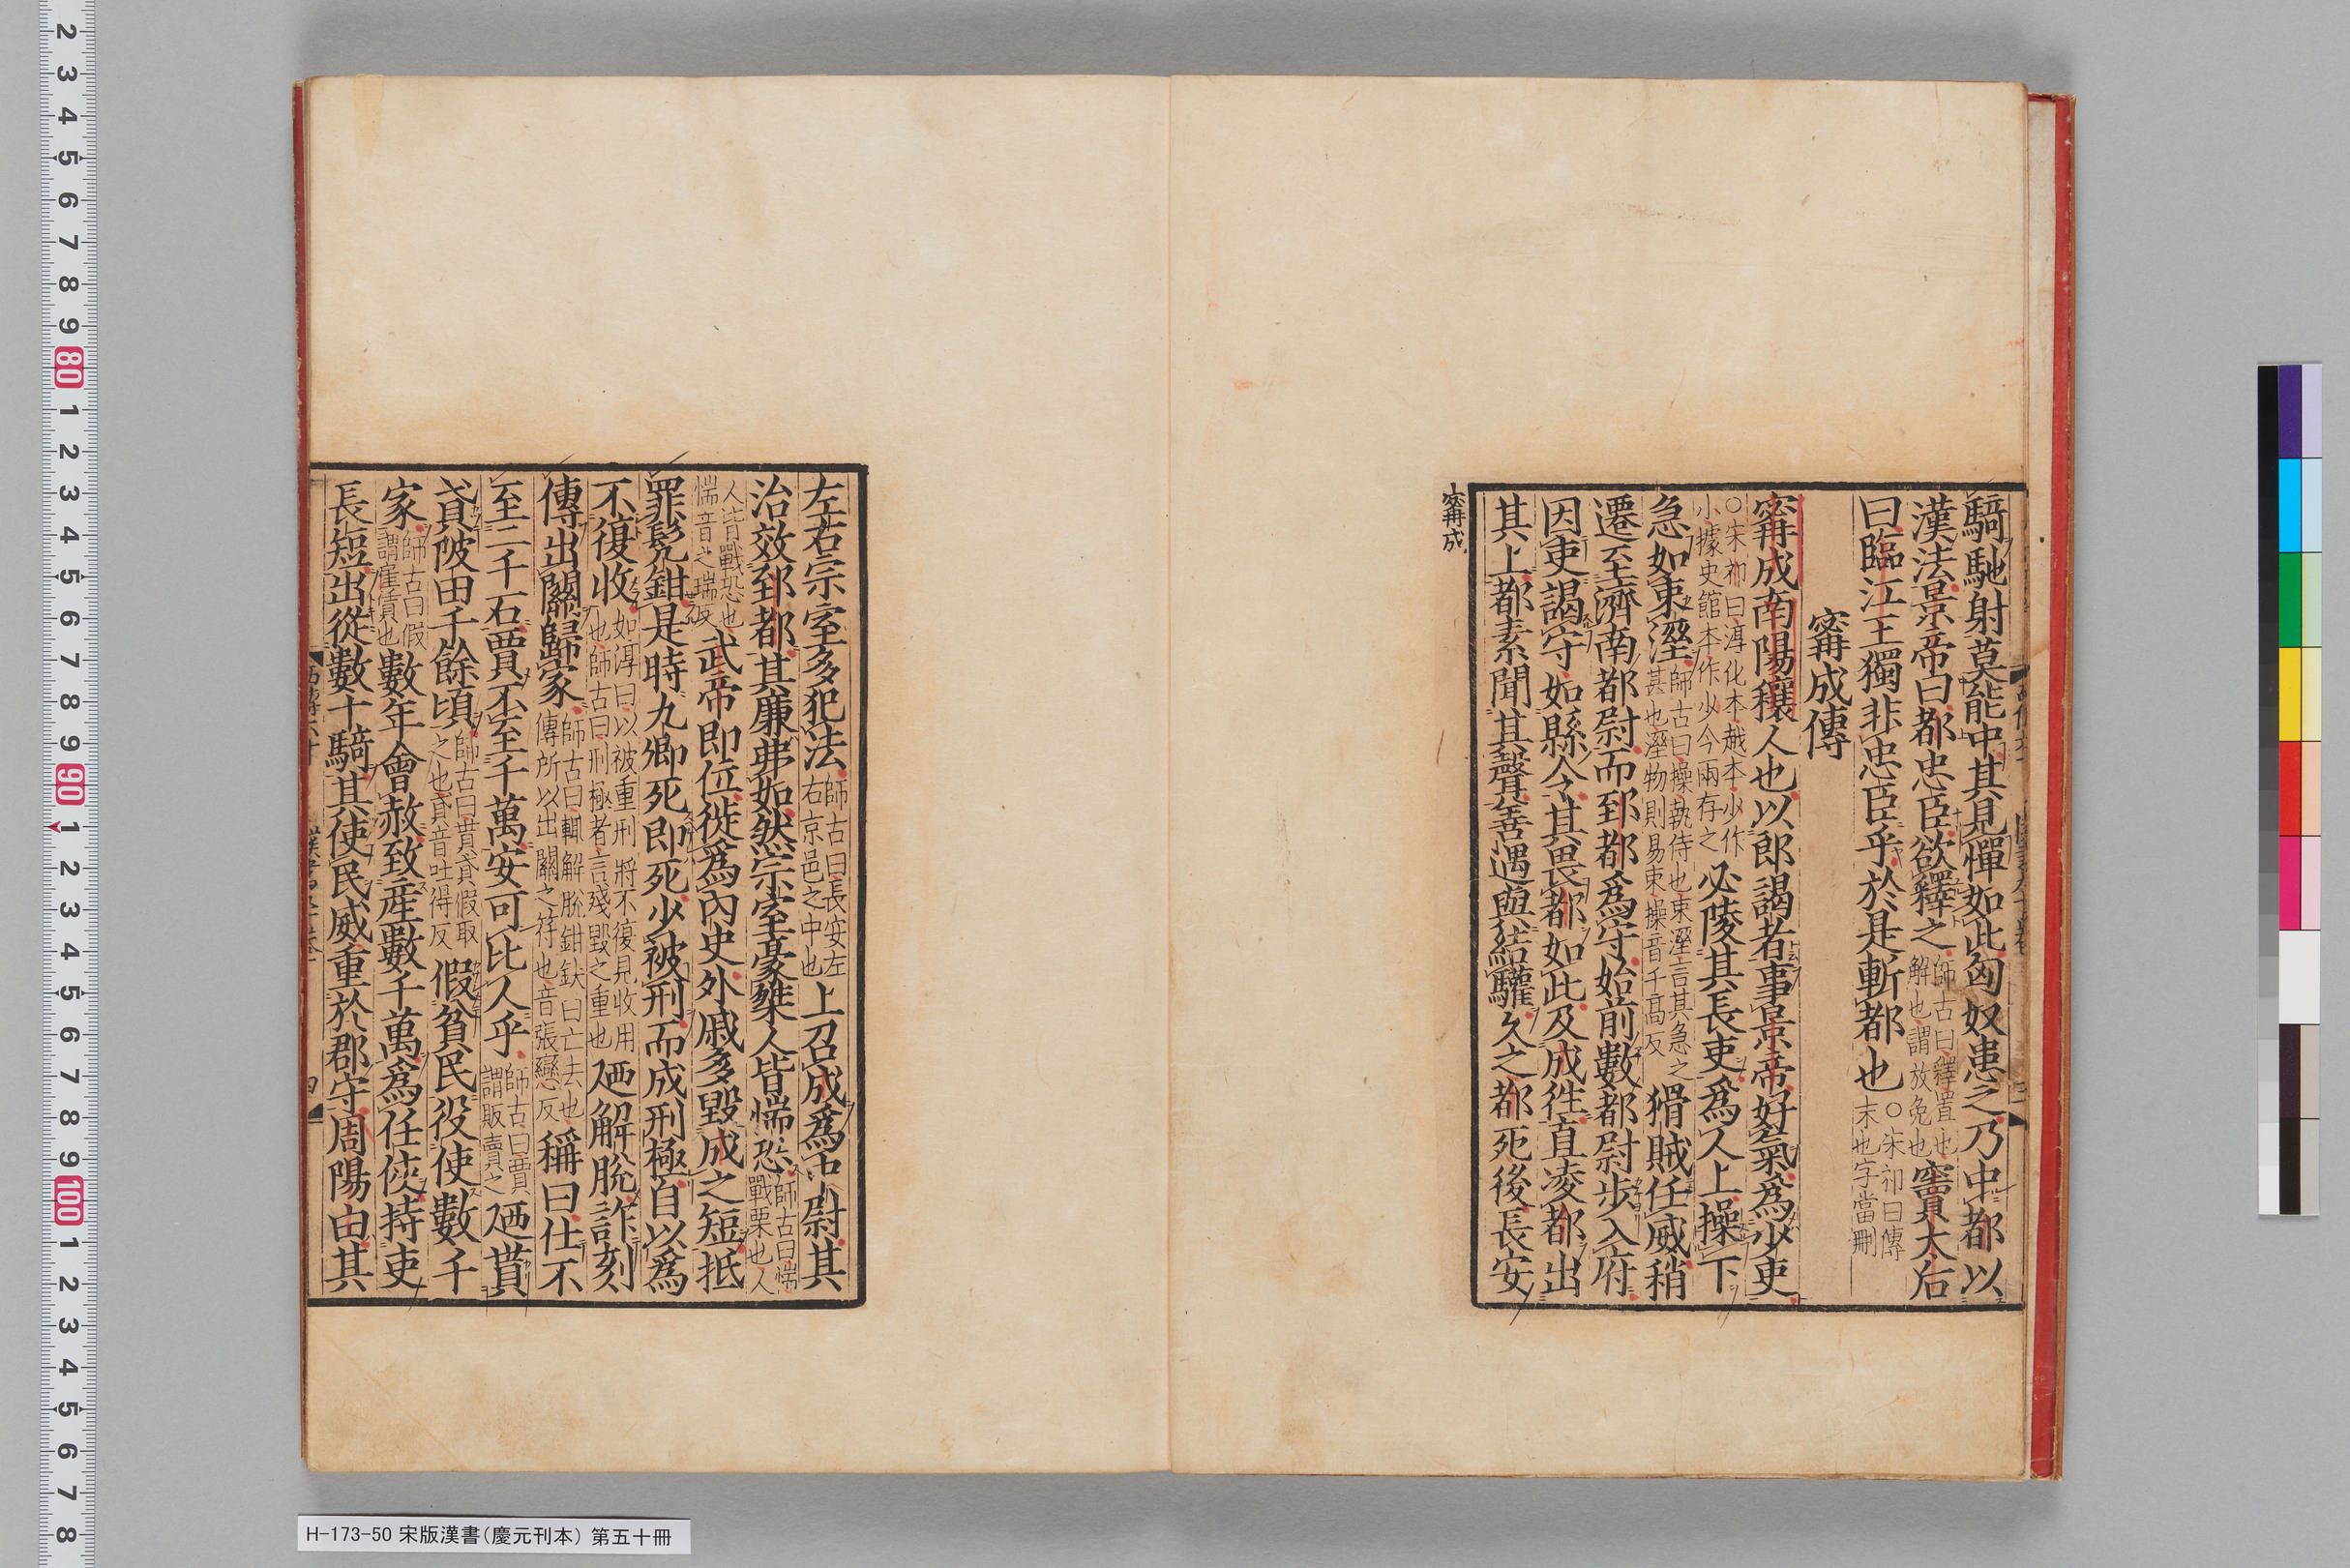 騎馳射莫能中其見憚如此匈奴患之乃中都以
漢法景帝曰都忠臣欲釋之師古曰釋置也解也謂放免也竇太后
曰臨江王獨非忠臣乎於是斬都也○宋祁曰傳末也字當刪
甯成傳
甯成南陽穰人也以郎謁者事景帝好氣爲少吏
○宋祁曰淳化本越本少作小據史館本作少今兩存之必陵其長吏爲人上操下
急如束溼師古曰操執侍也束溼言其急之甚也溼物則易束操音千高反猾賊任威稍
遷至濟南都尉而郅都爲守始前數都尉步入府
因吏謁守如縣令其畏都如此及成往直凌都出
其上都素聞其聲善遇與結驩久之都死後長安
甯成
左右宗室多犯法師古曰長安左右京邑之中也上召成爲中尉其
治效郅都其廉弗如然宗室豪桀人皆惴恐師古曰惴戰栗也人
人皆戰恐也惴音之瑞反武帝即位徙爲內史外戚多毀成之短抵
罪髡鉗是時九卿死即死少被刑而成刑極自以爲
不復收如淳曰以被重刑將不復見收用也師古曰刑極者言殘毀之重也廼解脫詐刻
傳出關歸家師古曰輒解脫鉗釱曰亡去也傳所以出關之符也音張戀反稱曰仕不
至二千石賈不至千萬安可比人乎師古曰賈謂販賣之廼貰
貣陂田千餘頃師古曰貰貣假取之也貣音吐得反假貧民役使數千
家師古曰假謂雇賃也數年會赦致產數千萬爲任俠持吏
長短出從數十騎其使民威重於郡守周陽由其
四
H-173-50 宋版漢書（慶元刊本） 第五十冊